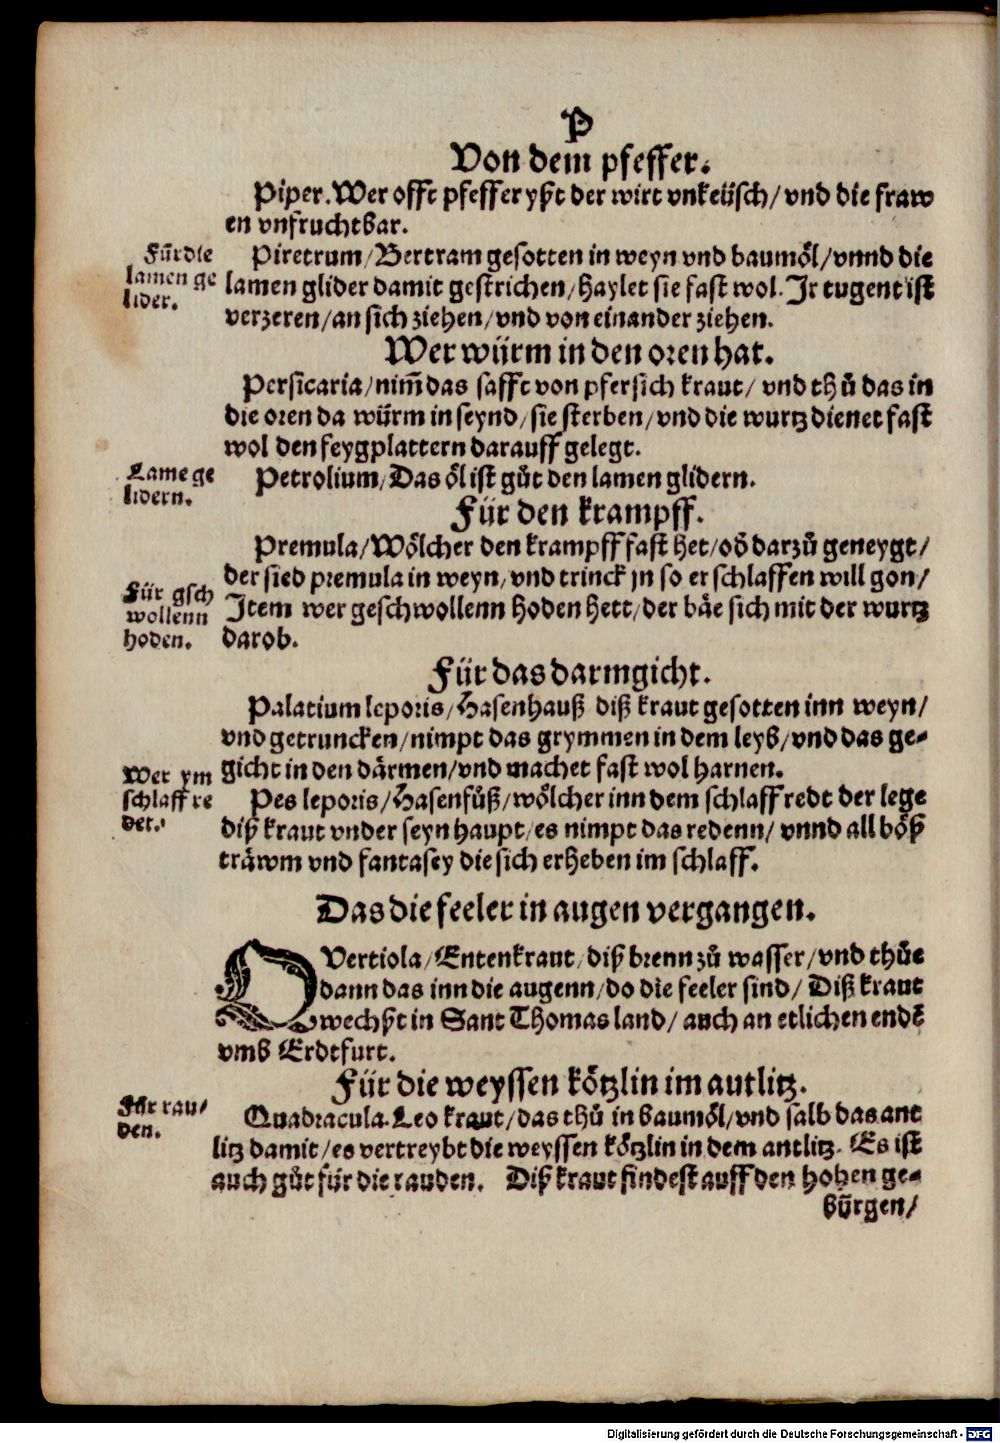 P
Von dem pfeffer.
Piper. Wer offt pfeffer yßt der wirt vnkeüsch/ vnd die fraw
en vnfruchtbar.
Für die
lamen ge
lider.
Piretrum/ Bertram gesotten in weyn vnd baumöl/ vnnd die
lamen glider damit gestrichen/ haylet sie fast wol. Ir tugent ist
verzeren/ an sich ziehen/ vnd von einander ziehen.
Wer würm in den oren hat.
Persicaria/ nim̄ das safft von pfersich kraut/ vnd thů das in
die oren da würm in seynd/ sie sterben/ vnd die wurtz dienet fast
wol den feygplattern darauff gelegt.
Lame ge
lidern.
Petrolium/ Das öl ist gůt den lamen glidern.
Für den krampff.
Premula/ Wölcher den krampff fast het/ od̄ darzů geneygt/
der sied premula in weyn/ vnd trinck jn so er schlaffen will gon/
Für gsch
wollenn
hoden.
Item wer geschwollenn hoden hett/ der bäe sich mit der wurtz
darob.
Für das darmgicht.
Palatium leporis/ Hasenhauß diß kraut gesotten inn weyn/
vnd getruncken/ nimpt das grymmen in dem leyb/ vnd das ge-
gicht in den därmen/ vnd machet fast wol harnen.
Wer ym
schlaff re
det.
Pes leporis/ Hasenfůß/ wölcher inn dem schlaff redt der lege
diß kraut vnder seyn haupt/ es nimpt das redenn/ vnnd all böß
träwm vnd fantasey die sich erheben im schlaff.
Das die feeler in augen vergangen.
QVertiola/ Entenkraut/ diß brenn zů wasser/ vnd thůe
dann das inn die augenn/ do die feeler sind/ Diß kraut
wechßt in Sant Thomas land/ auch an etlichen endē
vmb Erdtfurt.
Für die weyssen kötzlin im autlitz.
Für rau/
den.
Quadracula. Leo kraut/ das thů in baumöl/ vnd salb das ant
litz damit/ es vertreybt die weyssen kötzlin in dem antlitz. Es ist
auch gůt für die rauden. Diß kraut findest auff den hohen ge-
bürgen/
Digitalisierung gefördert durch die Deutsche Forschungsgemeinschaft - DFG